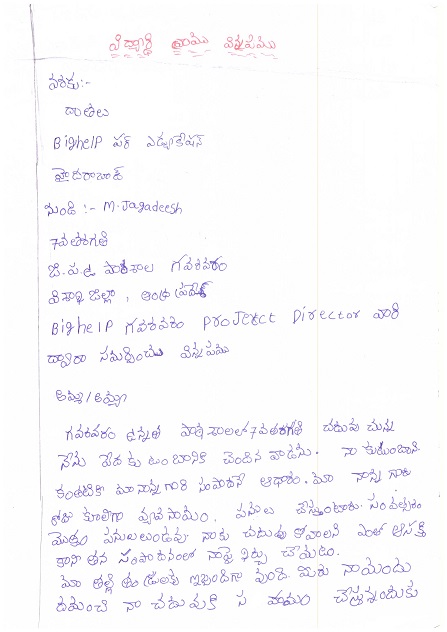 విద్యార్థి యొక్క విన్నపము
వరకు:-
దాతలు
BigheIP ఫర్ ఎడ్యుకేషన్
హైదరాబాద్
నుండి :- M. Jagadeesh
7వతరగతి
జి.ప.ఉ పాఠశాల గవరవరం
విశాఖ జిల్లా, ఆంధ్రప్రదేశ్
BigheIP గవరవరం ProJetct Director వారి
ద్వారా సమర్పించు విన్నపము
అమ్మ/అయ్యా
గవరవరం ఉన్నత పాఠశాలలో 7వతరగతి చదువు చున్న
నేను పేద కుటుంబానికి చెందిన వాడను. నా కుటుంబాని
కంతటికి మా నాన్న గారి సంపాదనే ఆధారం. మా నాన్న గారు
రోజు కూలిగా వ్యవసాయం. పనులు చేస్తుంటారు. సంవత్సరం
మొత్తం పనులులుండవు. నాకు చదువు కోవాలని ఎంతో ఆసక్తి
కాని తన సంపాదనంలో నాపై ఖర్చు చేయడం.
మా తల్లి తండ్రులకు ఇబ్బందిగా వుంది. మీరు నాయందు
దయుంచి నా చదువుకి స హాయం చేస్తున్నందుకు